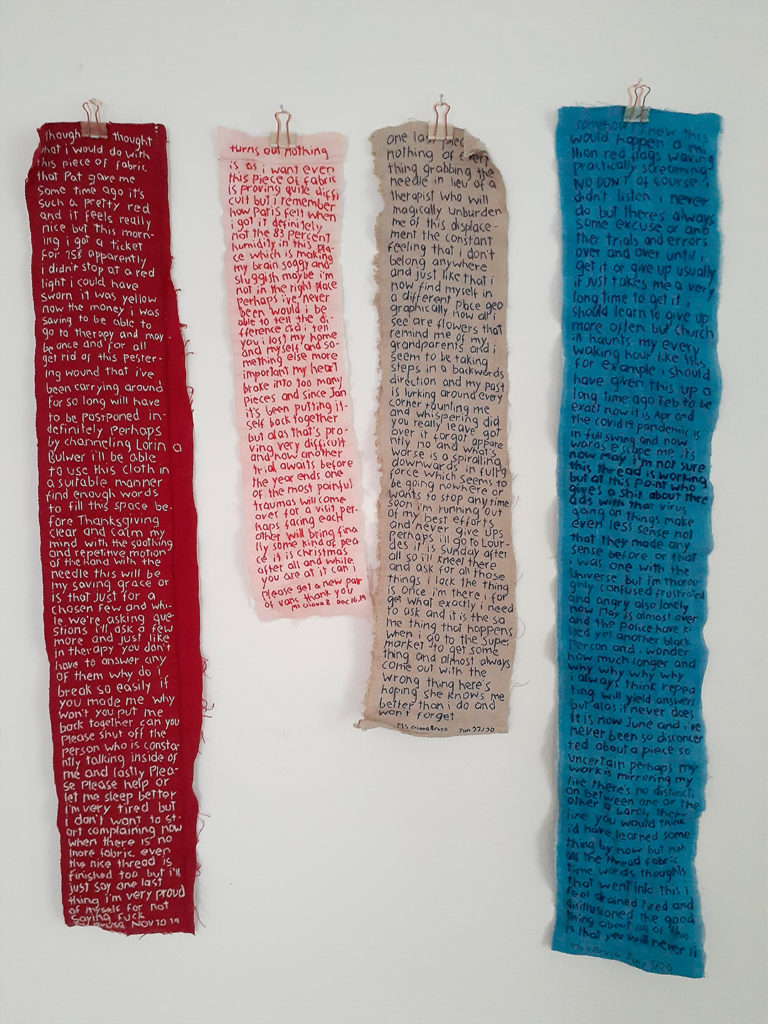 though thought
that i would do with
this piece of fabric
that Pat gave me
some time ago it's
such a pretty red
and it feels really
nice but this morn-
ing i got a ticket
for 158 apparently
i didn't stop at a red
light i could have
sworn it was yellow
now the money i was
saving to be able to
go to therapy and may-
be once and for all
get rid of this pester-
ing wound that i've
been carrying around
for so long will have
to be postponed in-
definitely perhaps
by channeling Lorin a
Bulwer i'll be able
to use this cloth in
a suitable manner
find enough words
to fill this space be-
fore Thanksgiving
clear and calm my
mind with the soothing
and repetitive motion
of the hand with the
needle this will be
my saving grace or
is that just for a
chosen few and whi-
le we're asking que-
stions i'll ask a few
more and just like
in therapy you don't
have to answer any
of them why do i
break so easily if
you made me why
won't you put me
back together can you
please shut off the
person who is consta-
ntly talking inside of
me and lastly Plea-
se Please help or
let me sleep better
i'm very tired but
i don't want to st-
art complaining now
when there is no
more fabric even
the nice thread is
finished too but i'll
just say one last
thing i'm very proud
of myself for not
saying fuck
Nov 20 19
turns out nothing
is as i want even
this piece of fabric
is proving quite diffi
cult but i remember
how Paris fell when
i got it definitely
not the 83 percent
humidity in this pla-
ce which is making
my brain soggy and
sluggish maybe i'm
not in the right place
perhaps i've never
been would i be
able to tell the di-
fference did i tell
you i lost my home
and myself and so-
mething else more
important my heart
broke into too many
pieces and since Jan
it's been putting it-
self back together
but alas that's pro-
ving very difficult
and now another
trial awaits before
the year ends one
of the most painful
traumas will come
over for a visit per-
haps facing each
other will bring fina
lly some kind of pea
ce it is christmas
after all and while
you are at it can i
please get a new pair
of vans thank you
Dec 16 19
one last
nothing of every
thing grabbing the
needle in lieu of a
therapist who will
magically unburden
me of this displace-
ment the constant
feeling that i don't
belong anywhere
and just like that i
now find myself in
a different place geo
graphically now all i
see are flowers that
remind me of my
grandparents and i
seem to be taking
steps in a backwards
direction and my past
is lurking around every
corner taunting me
and whispering did
you really leave got
over it forgot appare
ntly no and what's
worse is a spiralling
downwards in full
force which seems to
be going nowhere or
wants to stop anytime
soon i'm running out
of my best efforts
and never give ups
perhaps i'll go to Lour-
des it is Sunday after
all so i'll kneel there
and ask for all those
things i lack the thing
is once i'm there i for
get what exactly i need
to ask and it is the sa
me thing that happens
when i go to the super
market to get some
thing and almost always
come out with the
wrong thing here's
hoping she knows me
better than i do and
won't forget
Jan 27/20
somehow i knew this
would happen a mi
thon red flags waving
practically screaming
NO DON'T of course i
didn't listen i never
do but theres always
some excuse or ano
ther trials and errors
over and over until i
get it or give up usually
it just takes me a very
long time to get it i
should learn to give up
more often but church
ill haunts my every
waking hour like this
for example i should
have given this up a
long time ago feb to be
exact now it is Apr and
the covid 19 pandemic is
in full swing and now
words escape me its
now may i'm not sure
this thread is working
but at this point who
gives a shit about thre
ads with that virus
going on things make
even less sense not
that they made any
sense before or that
i was one with the
universe but i'm thorou-
ghly confused frustrated
and angry also lonely
now May is almost over
and the Police have ki
lled yet another black
person and i wonder
how much longer and
why why why why
i always think repea
ting will yield answers
but alas it never does
It is now June and i've
never been so disconcer
ted about a piece so
uncertain perhaps my
work is mirroring my
life there's no distincti
on between one or the
other a barely there
one you would think
i'd have learned some
thing by now but nah
all the thread fabric
time words thoughts
that went into this i
feel drained tired and
disillusioned the good
thing about all of this
is that you will never